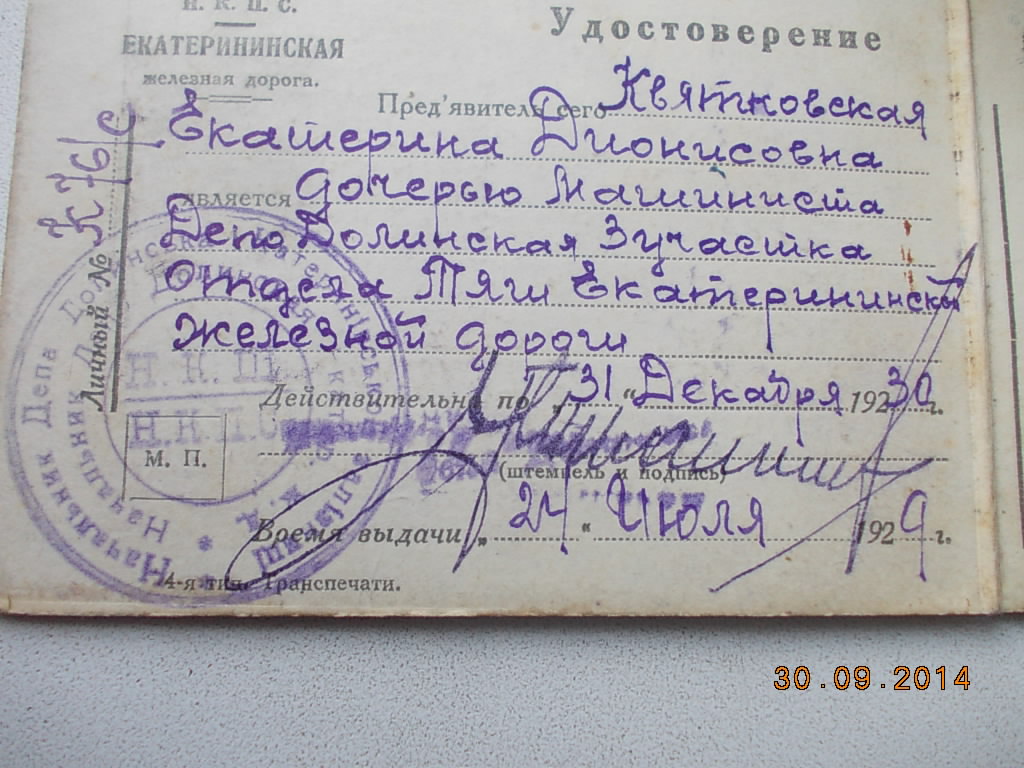 Н. К. П. С.
ЕКАТЕРИНИНСКАЯ
железная дорога.
Удостоверение
Пред'явитель сего Квятковская
Екатерина Дионисовна
является дочерью Машиниста
Депо Долинская 3 участка
Отдела Тяги Екатерининской
железной дороги
Действительно по „31 “ Декабря 1930 г.
(штемпель и подпись)
Время выдачи „ 24 “ Июля 1929 г.
4-я тип. Транспечати.
Личный №
М. П.
Н. К. Ш.
Н. К. П. С.
Начальник Депа
Начальник Депо
30.09.2014